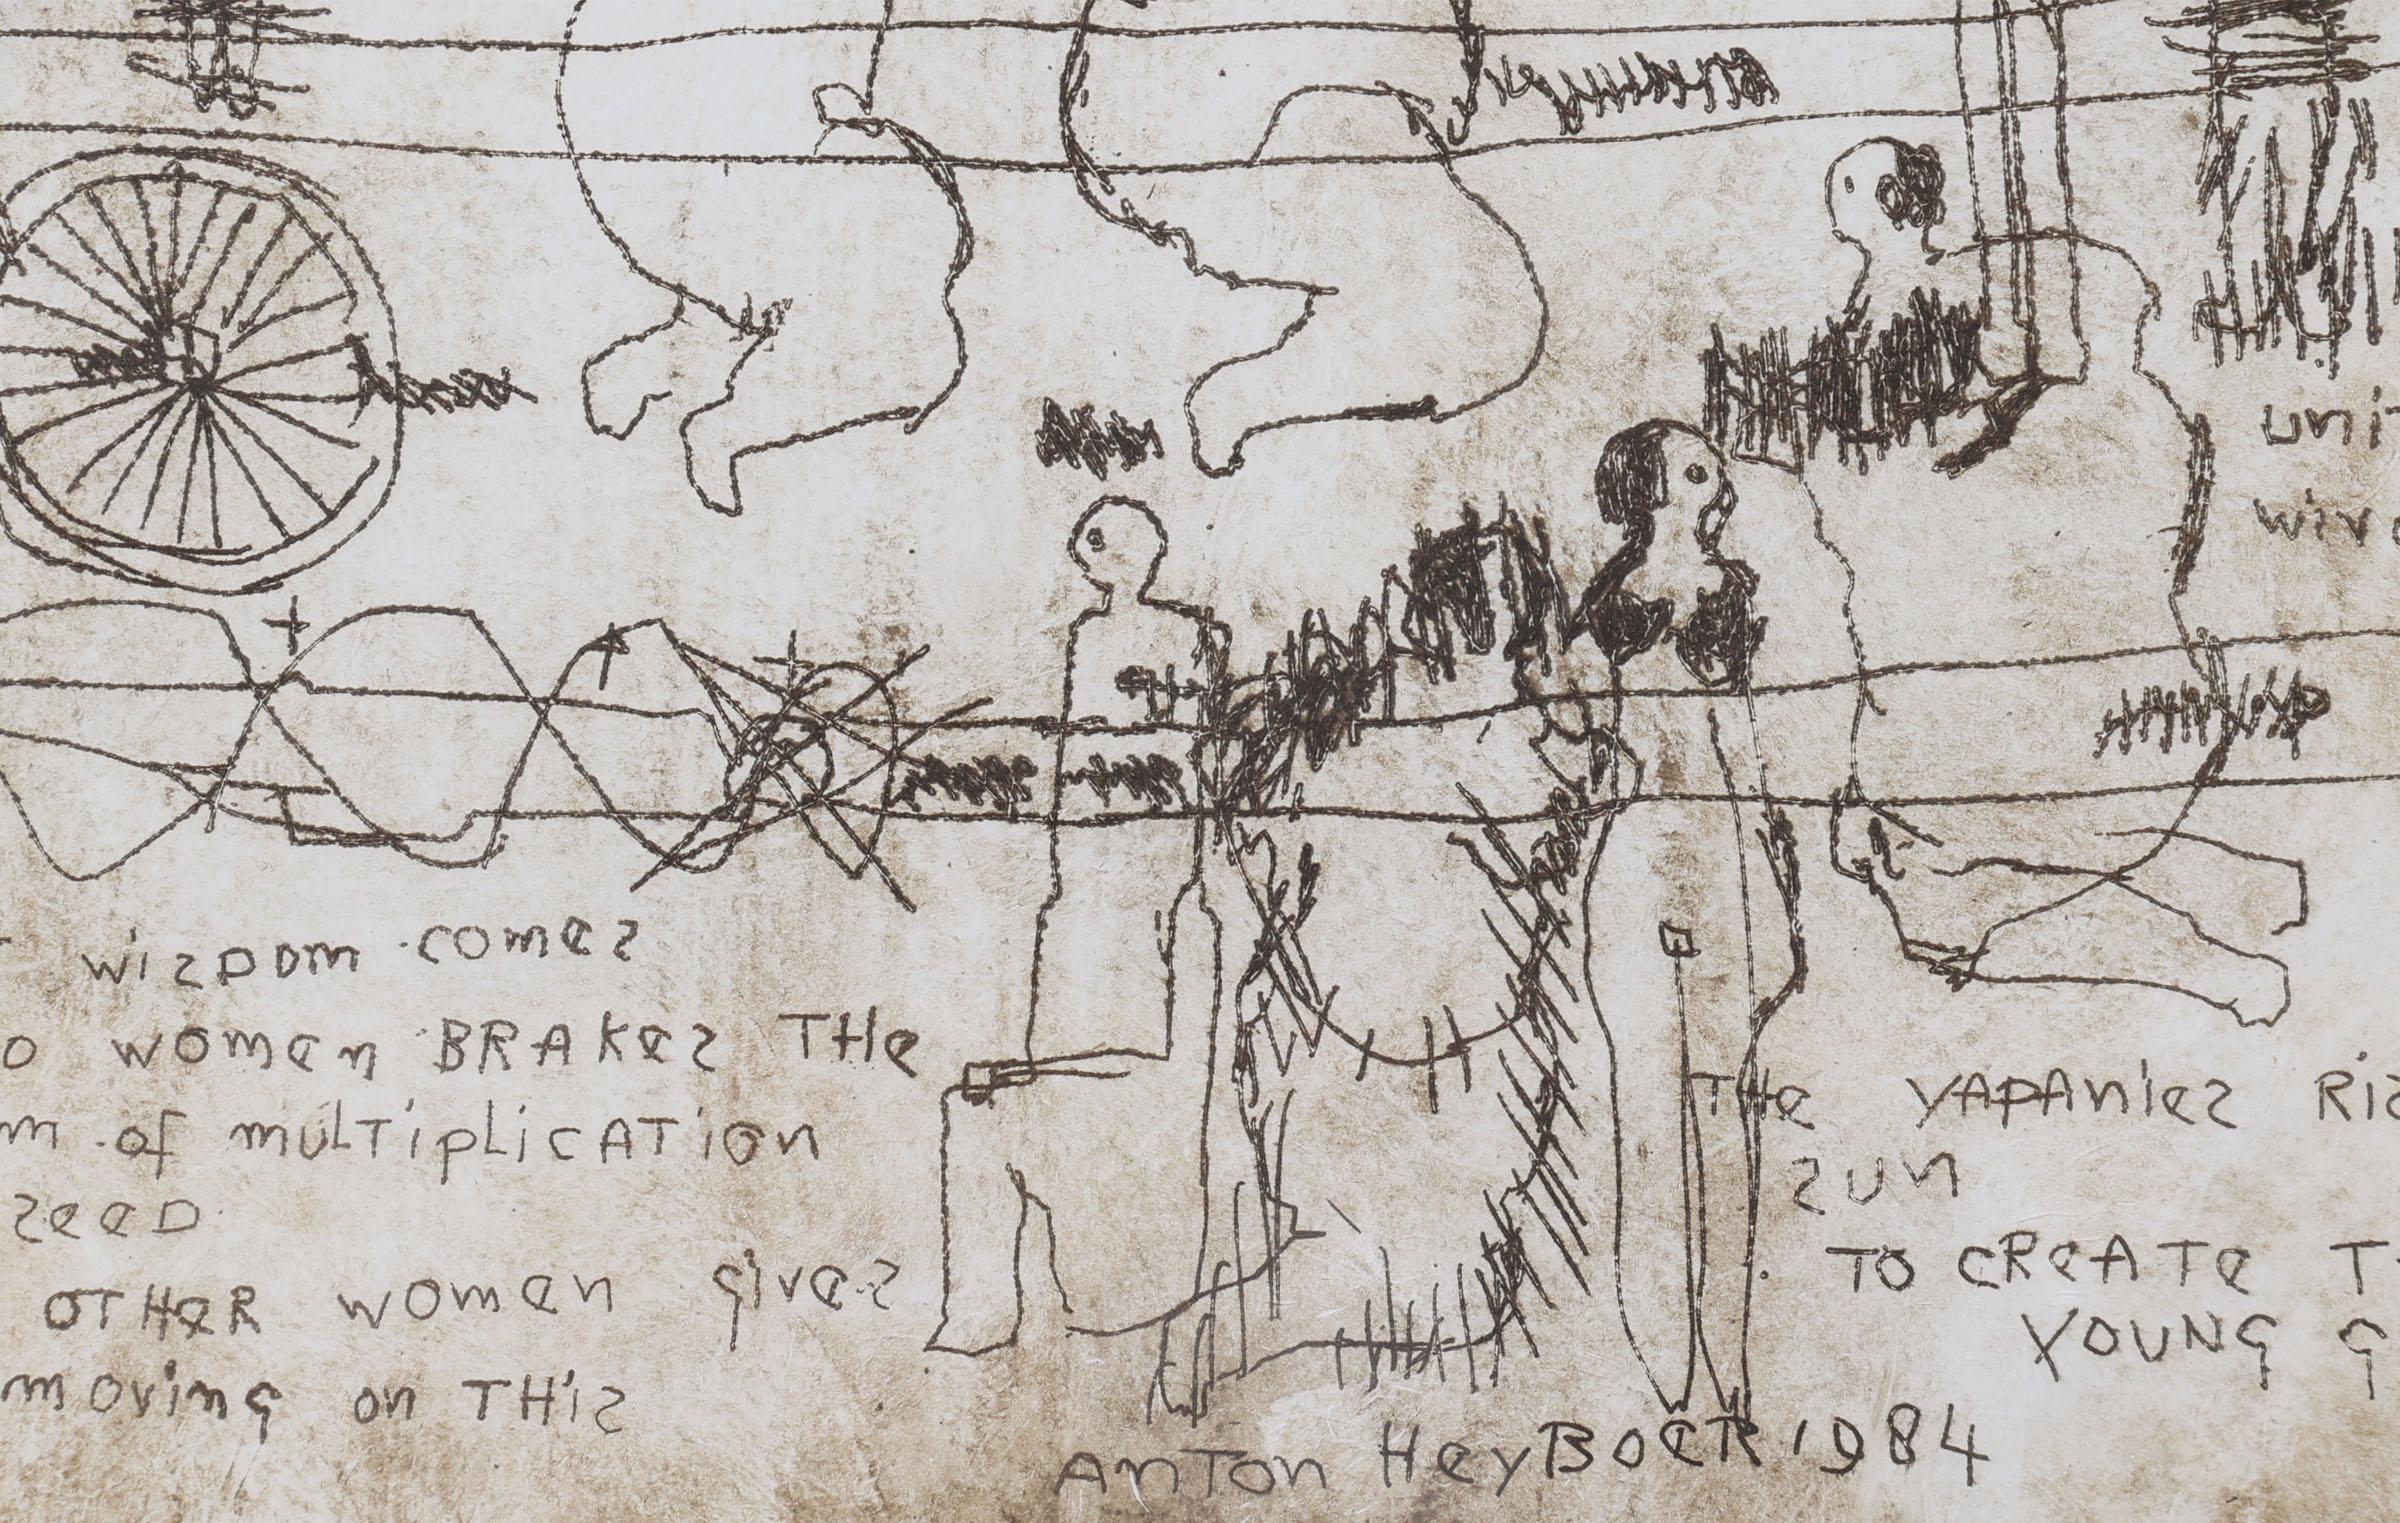 wisDom comes
o women BRAKes THe
m of muLTipLicATion
seeD
OTHeR women gives
moving on THis
uni
wiv
THe YAPAnies Ris
sun
TO CReATe T
YOUNg g
AnTon HeyBoeR 1984